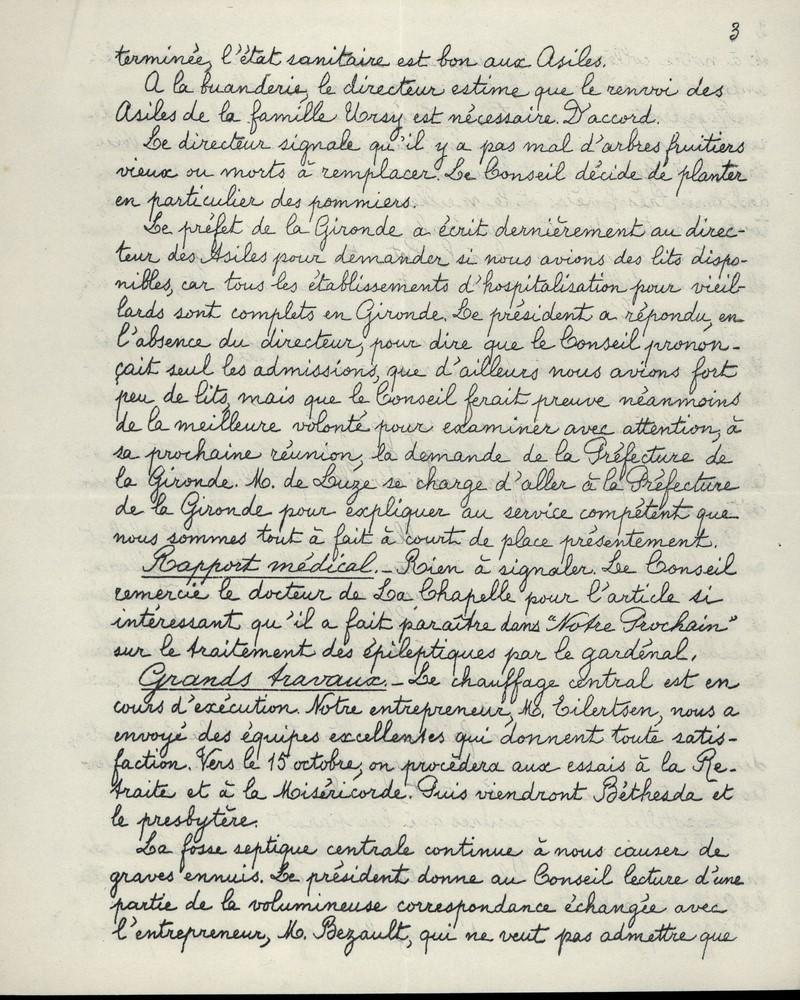 3
terminée, l'état sanitaire est bon aux Asiles.
A la buanderie, le directeur estime que le renvoi des
Asiles de la famille Ursy est nécessaire. D'accord.
Le directeur signale qu'il y a pas mal d'arbres fruitiers
vieux ou morts à remplacer. Le Conseil décide de planter
en particulier des pommiers.
Le préfet de la Gironde a écrit dernièrement au direc-
teur des Asiles pour demander si nous avions des lits dispo-
nibles, car tous les établissements d'hospitalisation pour vieil-
lards sont complets en Gironde. Le président a répondu, en
l'absence du directeur, pour dire que le Conseil pronon-
çait seul les admissions, que d'ailleurs nous avions fort
peu de lits, mais que le Conseil ferait preuve néanmoins
de la meilleure volonté pour examiner avec attention, à
sa prochaine réunion, la demande de la Préfecture de
la Gironde. M. de Luze se charge d'aller à la Préfecture
de la Gironde pour expliquer au service compétent que
nous sommes tout à fait à court de place présentement.
Rapport médical. - Rien à signaler. Le Conseil
remercie le docteur de La Chapelle pour l'article si
intéressant qu'il a fait paraître dans "Notre Prochain"
sur le traitement des épileptiques par le gardénal.
Grands travaux. - Le chauffage central est en
cours d'exécution. Notre entrepreneur, M. Eilertsen, nous a
envoyé des équipes excellentes qui donnent toute satis-
faction. Vers le 15 octobre, on procèdera aux essais à la Re-
traite et à la Miséricorde. Puis viendront Béthesda et
le presbytère.
La fosse septique centrale continue à nous causer de
graves ennuis. Le président donne au Conseil lecture d'une
partie de la volumineuse correspondance échangée avec
l'entrepreneur, M. Bezault, qui ne veut pas admettre que